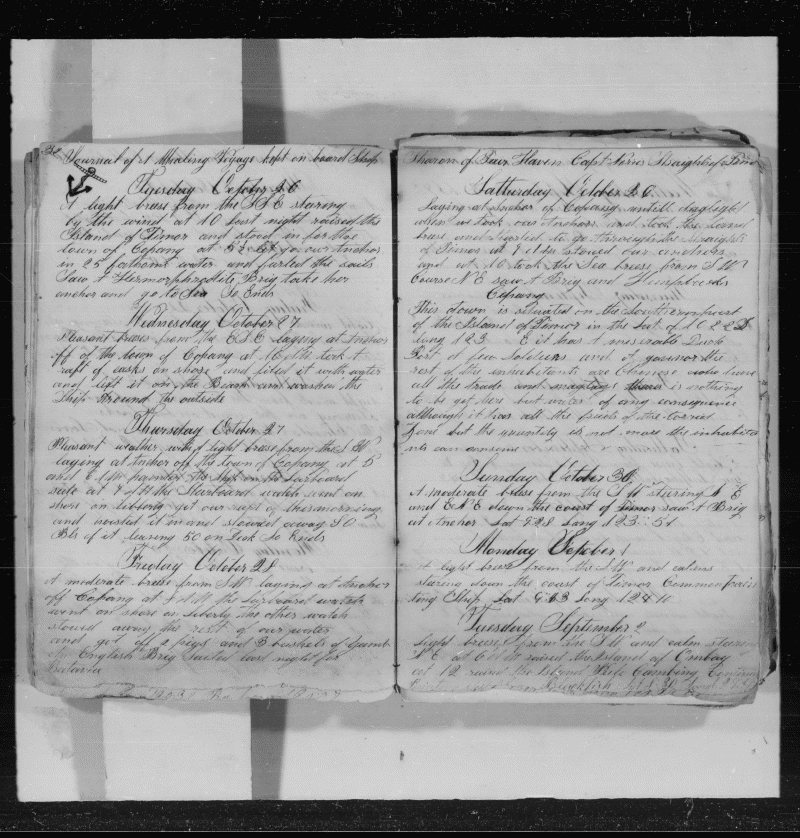 Journal of A Whaling Voyage kept on board Ship
Tuesday October 26
A light brese from the SSE staring
by the wind at 10 last night raised the
Island of Timor and stood in for the
town of Copang at 5 let go our Anchor
in 25 fathoms water and furled the sails
Saw A Hermorphrodite Brig take her
anchor and go to Sea So Ends
Wednesday October 27
Pleasant breses from the ESE laying at Anchor
off of the town of Copang at took A
raft of casks on shore and filed it with water
and left it on the Beach and washed the
Ship Around the outside
Thursday October 27
Pleasant weather with A light brese from the SW
laying at Anchor off the town of Copang at 5
and the Ship on the Larboard
side at the Starboard watch went on
shore on liberty got our raft of this morning
and hoisted it in and stowed away 30
Bls of it leaving 50 on Deck So Ends
Friday October 28
A moderate brese from SW laying at Anchor
off Copang at 8 AM the Larboard watch
went on shore on liberty the other watch
stowed away the rest of our water
and got of 2 pigs and 3 bushels of
the English Brig Sailed last night for
Batavia
Sharon of Fair Haven Capt Straights of Timor
Satturday October 20
Laying at Anchor of Copang untill daylight
when we took our Anchor and took the land
brese and started to go through the Straights
of Timor at 9 AM stowed our anchors
and at 10 took the Sea brese from SW
Course NE saw A Brig and
Copang
This town is situated on the Southern part
of the Island of Timor in the Lat of 10 22 S
Long 123 E it has A miserable Duch
Fort A few Soldiers and A govenor the
rest of the inhabitants are Chinese who have
all the trade and there is nothing
to be got here but water of any consequence
although it has all the fruits of the torred
Zone but the quantity is not more the inhabita
nts can consume
Sunday October 30
A moderate brese from the SW staring NE
and ENE down the coast of Timor saw A Brig
at Anchor Lat 9 28 Long 123 51
Monday October 1
A light brese from the SW and calms
staring down the coast of Timor Commenc
ting Ship Lat 9 13 Long 124 11
Tuesday September 2
Light breses from the SW and calm staring
NE at 6 AM raised the Island of Ombay
at 12 raised the Island